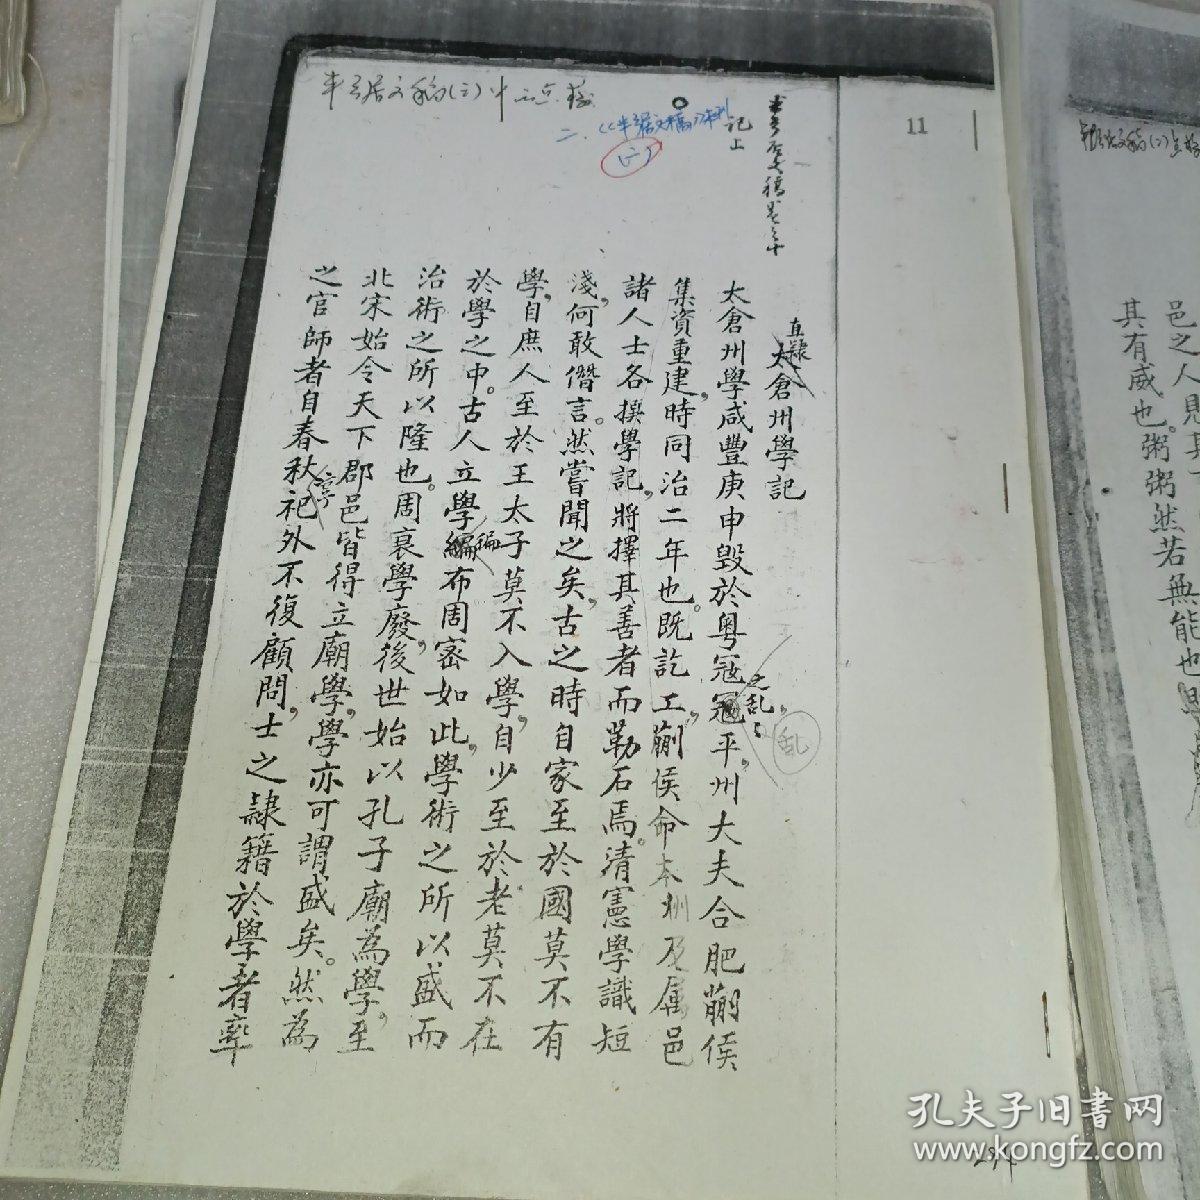 11
記上
直隸太倉州學記
太倉州學咸豐庚申毀於粵寇之亂,寇平,州大夫合肥蒯侯
集資重建,時同治二年也。既訖工,蒯侯命本州及属邑
諸人士各撰學記,將擇其善者而勒石焉。清憲學識短
淺,何敢僭言。然嘗聞之矣,古之時自家至於國莫不有
學,自庶人至於王太子莫不入學,自少至於老莫不在
於學之中。古人立學編布周密如此,學術之所以盛而
治術之所以隆也。周衰學廢,後世始以孔子廟為學,至
北宋始令天下郡邑皆得立廟學,學亦可謂盛矣。然為
之官師者自春秋祀外不復顧問,士之隸籍於學者率
亂
邑之人
其有威也。粥粥然若無能也
孔夫子旧书网
www.kongfz.com